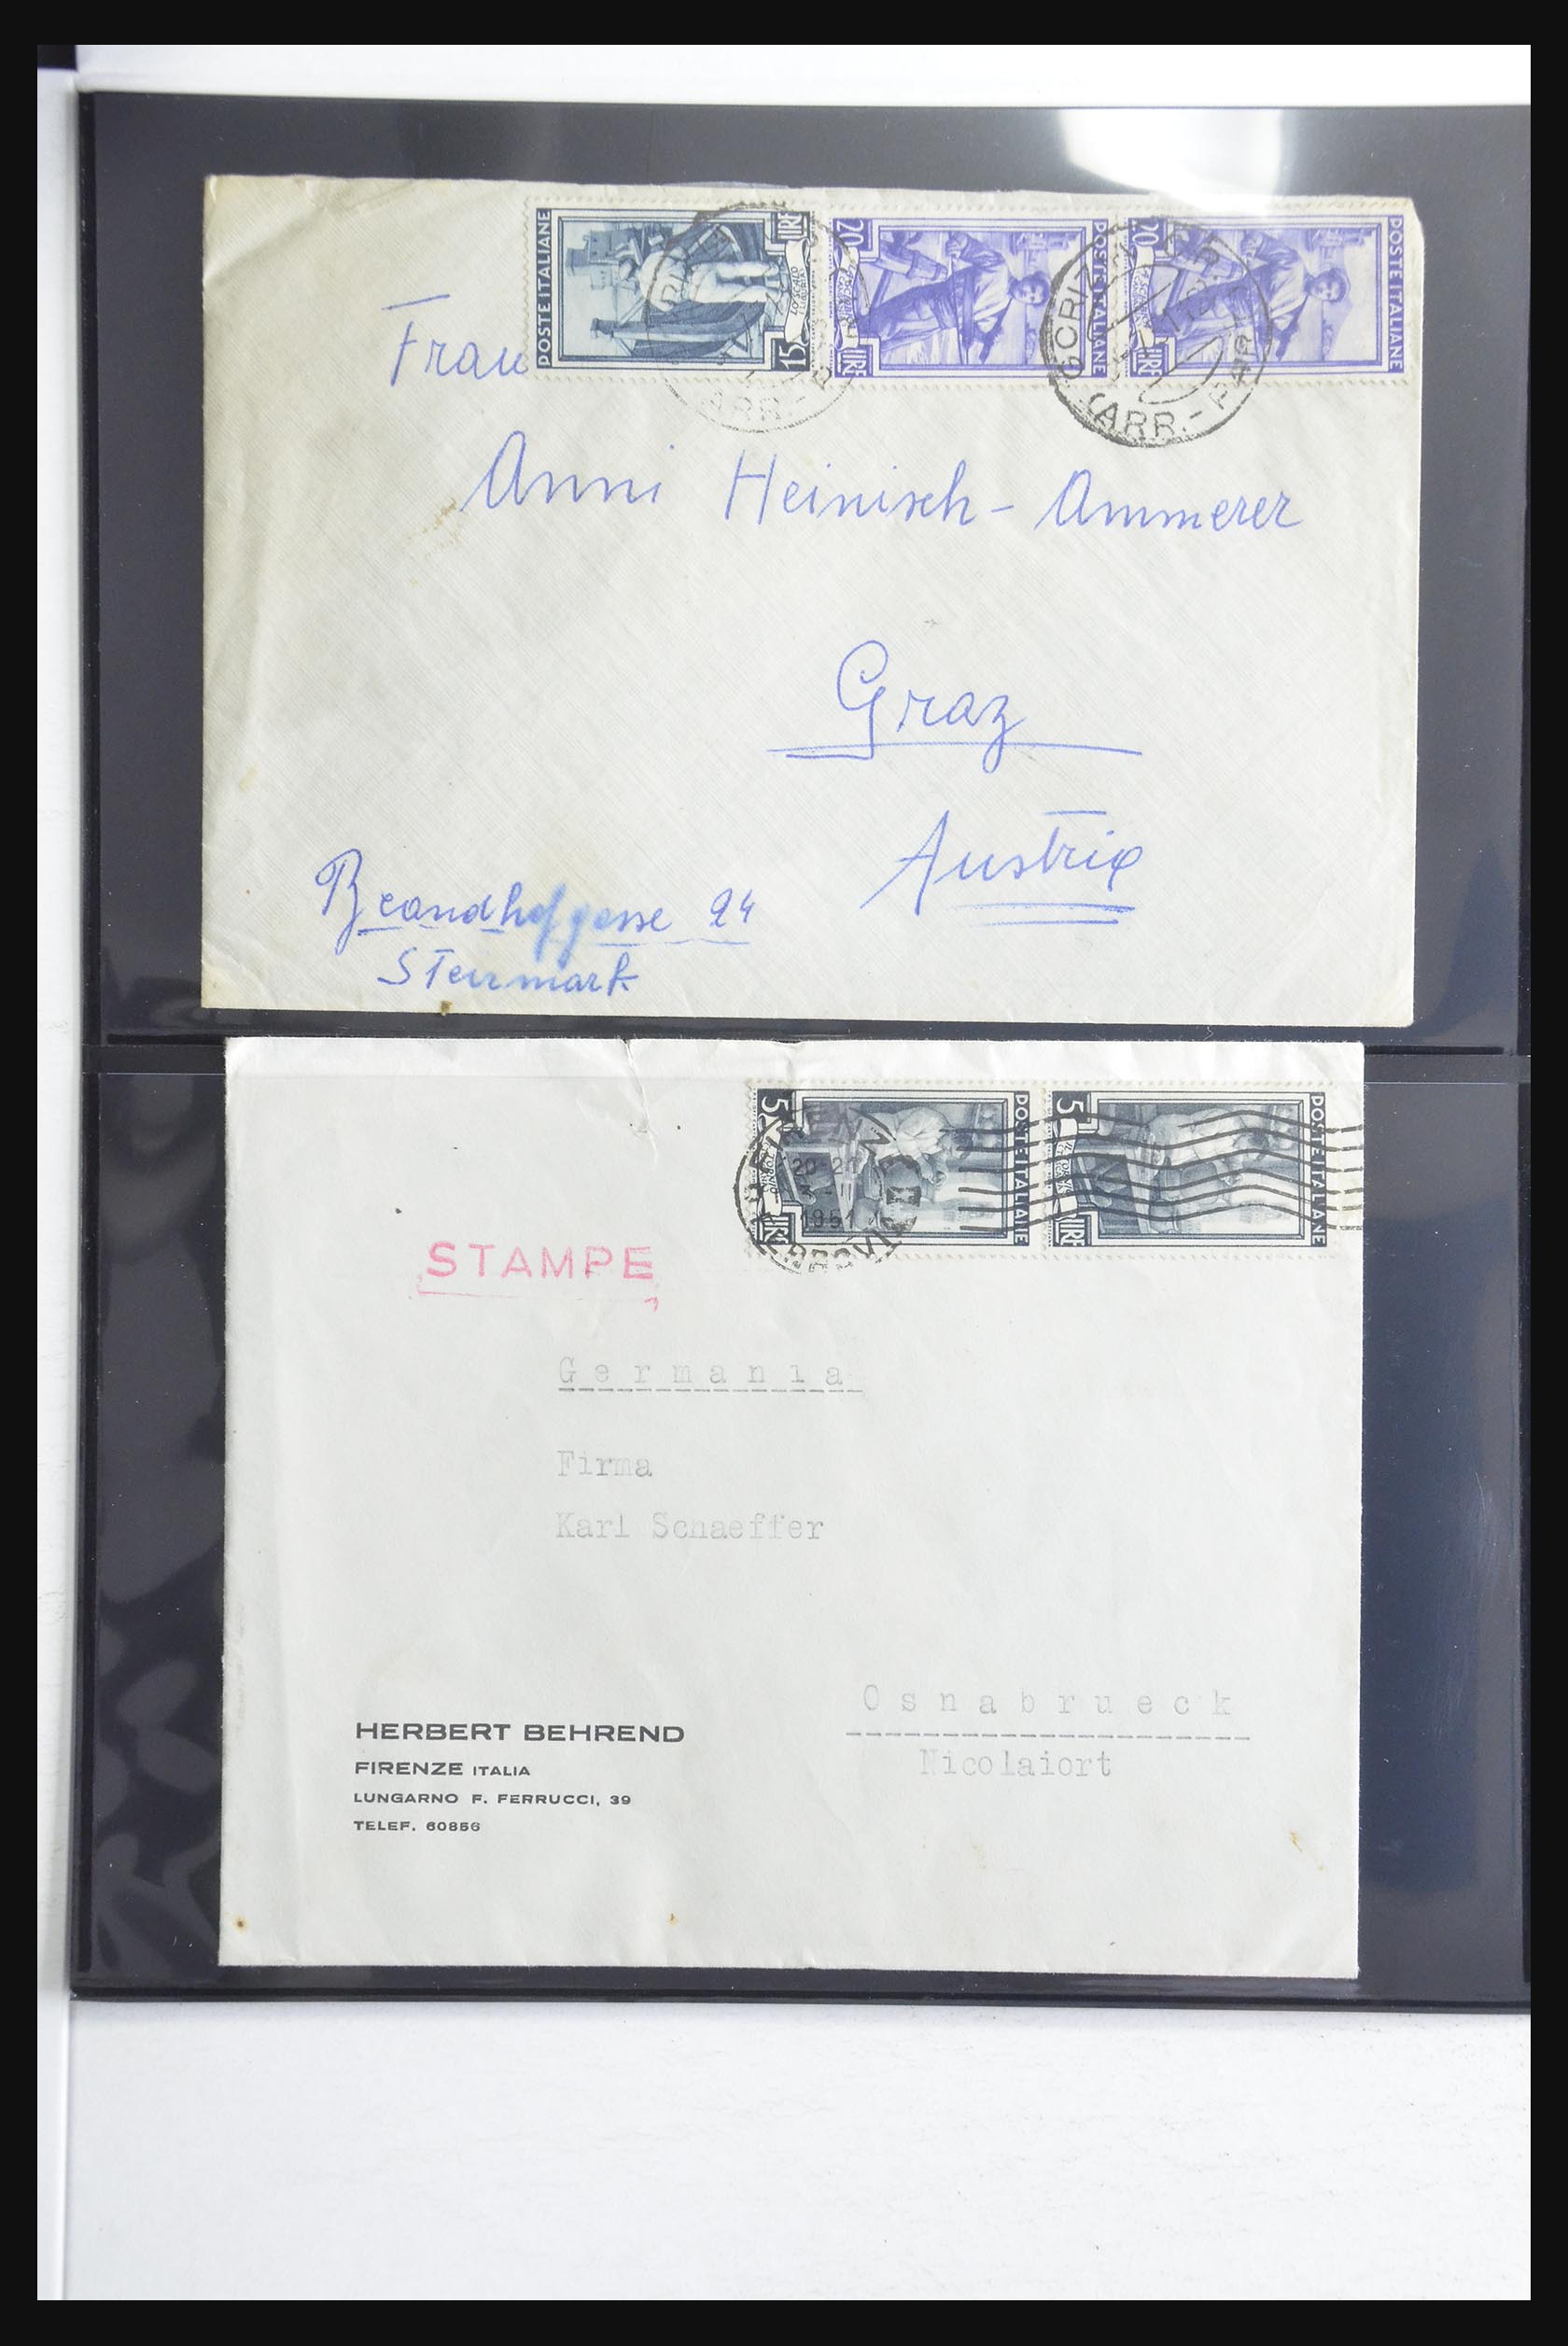 POSTE ITALIANE
15 LIRE
20 LIRE
POSTE ITALIANE
20 LIRE
POSTE ITALIANE
GORIZIA
ARR.-PAR
Frau
Anni Heinisch-Ammerer
Graz
Austria
Brandhofgasse 24
Steiermark
5 LIRE
POSTE ITALIANE
5 LIRE
POSTE ITALIANE
20-21
1951
STAMPE
Germania
Firma
Karl Schaeffer
Osnabrueck
Nicolaiort
HERBERT BEHREND
FIRENZE ITALIA
LUNGARNO F. FERRUCCI, 39
TELEF. 60856